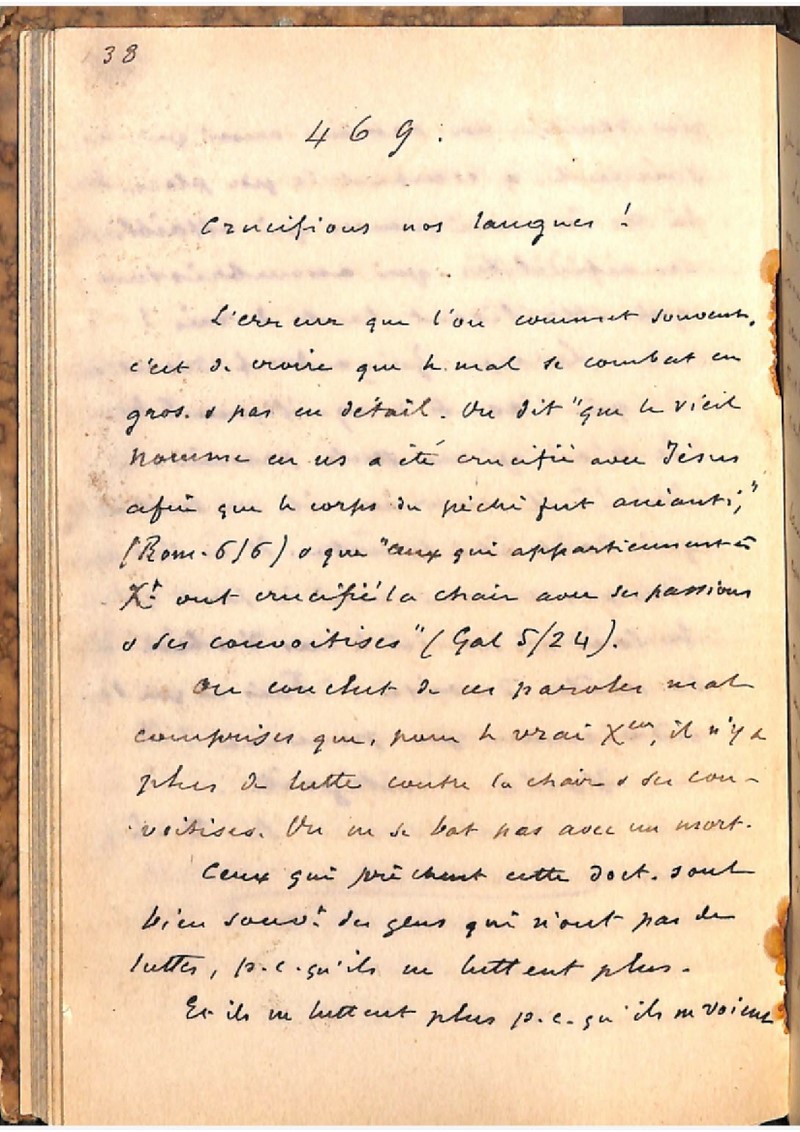 38
469.
Crucifions nos langues !
L'erreur que l'on commet souvent,
c'est de croire que le mal se combat en
gros. & pas en détail. On dit "que le vieil
homme en ns a été crucifié avec Jésus
afin que le corps du péché fut anéanti;"
(Rom. 6/6) & que "ceux qui appartiennent à
Xt ont crucifié la chair avec ses passions
& ses convoitises" (Gal 5/24).
On conclut de ces paroles mal
comprises que, pour le vrai Xen, il n'y a
plus de lutte contre la chair & ses con-
voitises. On ne se bat pas avec un mort.
Ceux qui prêchent cette doct. sont
bien souvt des gens qui n'ont pas de
luttes, p.c.qu'ils ne luttent plus.
Et ils ne luttent plus p.c.qu'ils ne voient